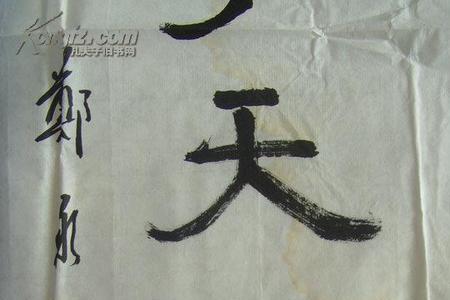 天
鄭永
Kongfz.com
孔夫子旧书网